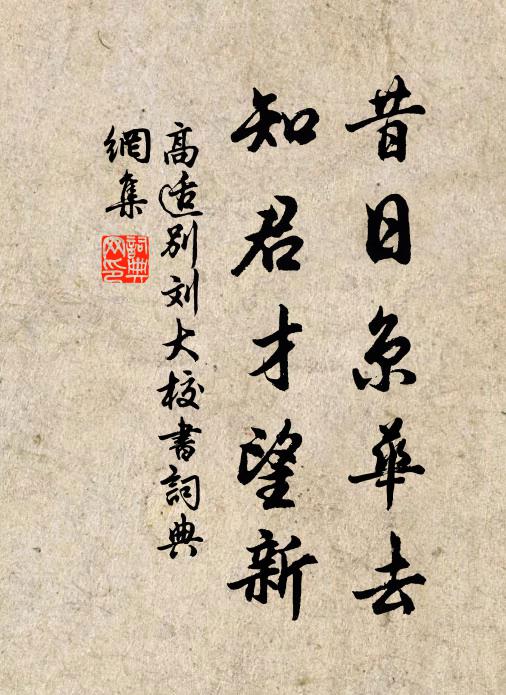 昔日京華去
知君才望新
高适别刘大校書詞典
網集
詞典
网印